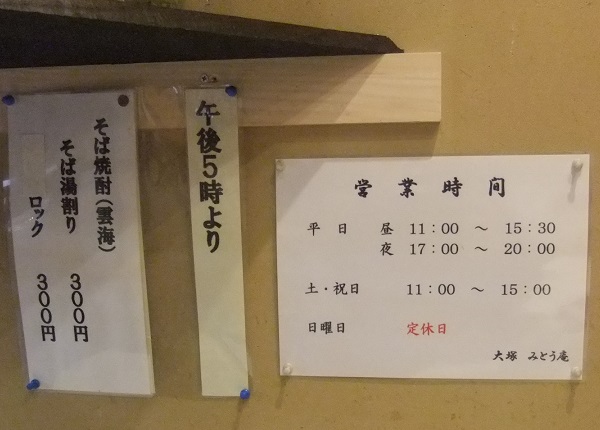 そば焼酎(雲海)
そば湯割り 300円
ロック 300円
午後5時より
営業時間
平日 昼 11:00 ～ 15:30
夜 17:00 ～ 20:00
土・祝日 11:00 ～ 15:00
日曜日 定休日
大塚 みとう庵